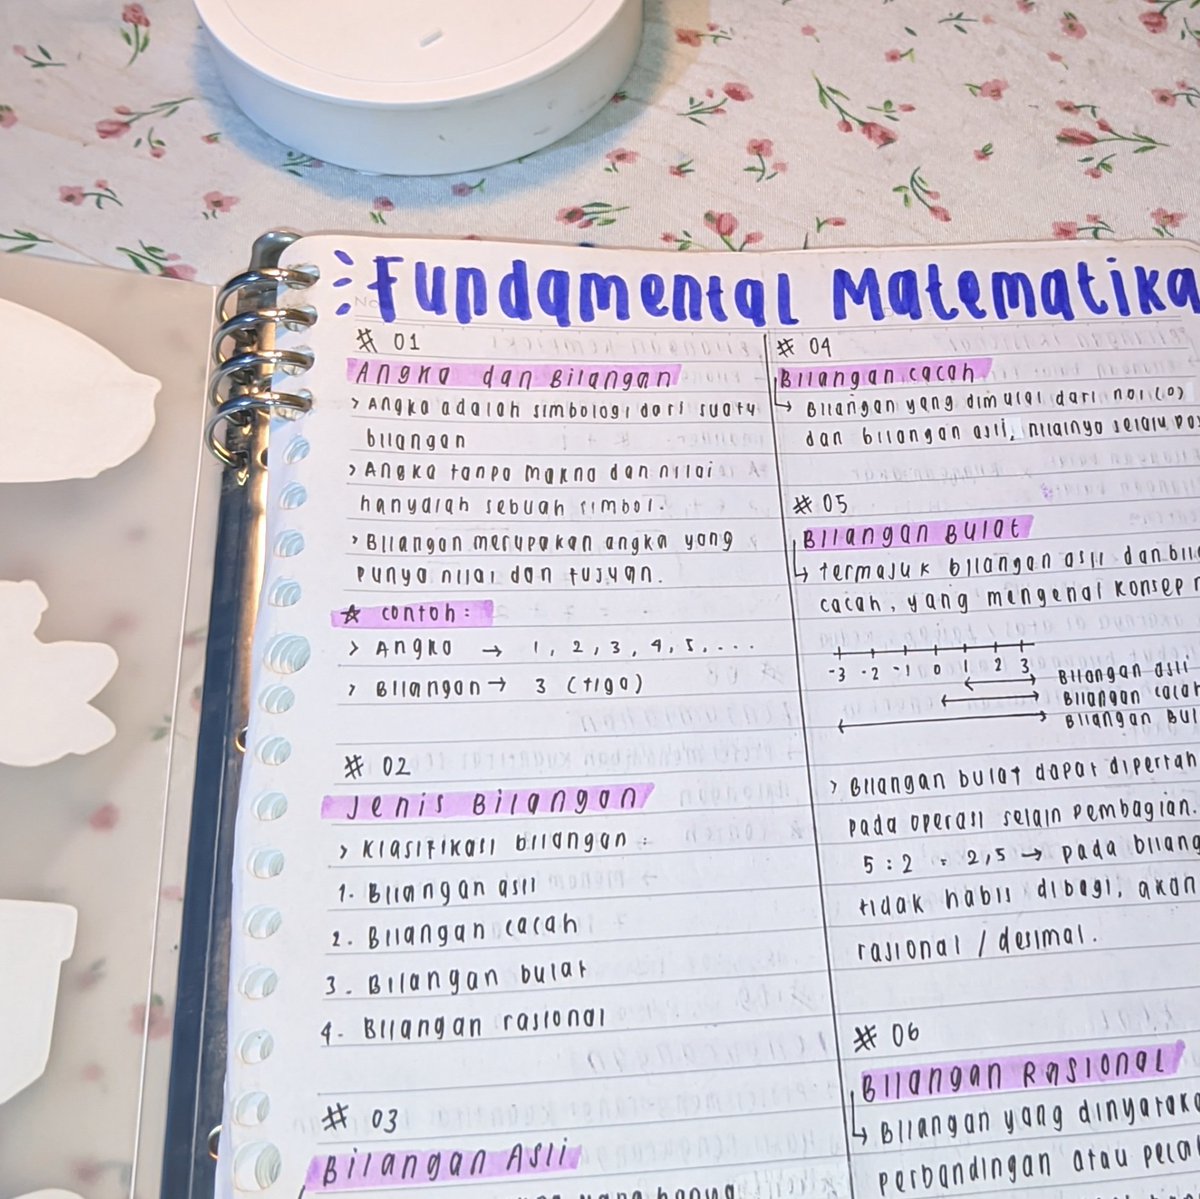 Fundamental Matematika
# 01
Angka dan Bilangan
> Angka adalah simbologi dari suatu
bilangan
> Angka tanpa makna dan nilai
hanyalah sebuah simbol.
> Bilangan merupakan angka yang
punya nilai dan tujuan.
☆ contoh:
> Angka → 1, 2, 3, 4, 5, ...
> Bilangan → 3 (tiga)
# 02
Jenis Bilangan
> Klasifikasi bilangan:
1. Bilangan asli
2. Bilangan cacah
3. Bilangan bulat
4. Bilangan rasional
# 03
Bilangan Asli
yang hanya
# 04
Bilangan cacah
↳ Bilangan yang dimulai dari nol (0)
dan bilangan asli, nilainya selalu
# 05
Bilangan Bulat
↳ termasuk bilangan asli dan
cacah, yang mengenal konsep
-3 -2 -1 0 1 2 3
Bilangan asli
Bilangan cacah
Bilangan
> Bilangan bulat dapat
pada operasi selain pembagian.
5 : 2 = 2,5 → pada
tidak habis dibagi, akan
rasional / desimal.
# 06
Bilangan Rasional
↳ Bilangan yang
perbandingan atau